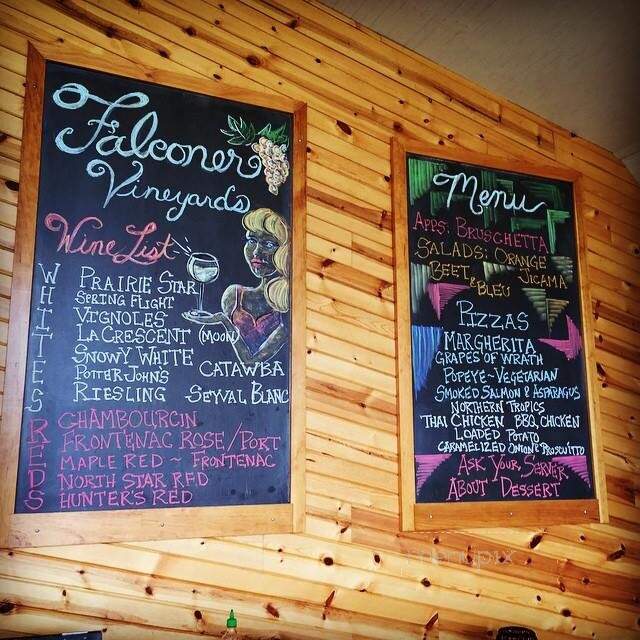 Falconer
Vineyards
Wine List
WHITES
PRAIRIE STAR
SPRING FLIGHT
VIGNOLES
LA CRESCENT (MOON)
SNOWY WHITE CATAWBA
POTTER JOHN'S
RIESLING SEYVAL BLANC
REDS
CHAMBOURCIN
FRONTENAC ROSE/PORT
MAPLE RED ~ FRONTENAC
NORTH STAR RED
HUNTER'S RED
Menu
APPS: BRUSCHETTA
SALADS: ORANGE
BEET & BLEU JICAMA
PIZZAS
MARGHERITA
GRAPES OF WRATH
POPEYE-VEGETARIAN
SMOKED SALMON & ASPARAGUS
NORTHERN TROPICS
THAI CHICKEN BBQ CHICKEN
LOADED POTATO
CARAMELIZED ONION & PROSCUITTO
ASK YOUR SERVER
ABOUT DESSERT
menupix